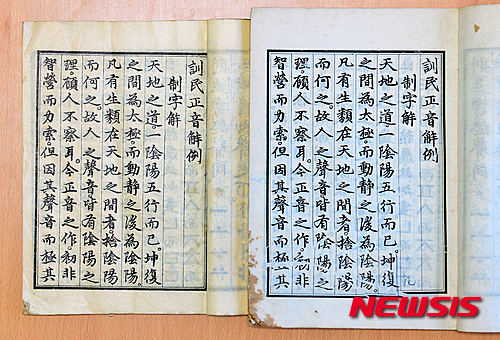 訓民正音解例
制字解
天地之道。一陰陽五行而已。坤復
之間為太極。而動靜之後為陰陽。
凡有生類在天地之間者。捨陰陽
而何之。故人之聲音。皆有陰陽之
理。顧人不察耳。今正音之作。初非
智營而力索。但因其聲音而極其
訓民正音解例
制字解
天地之道。一陰陽五行而已。坤復
之間為太極。而動靜之後為陰陽。
凡有生類在天地之間者。捨陰陽
而何之。故人之聲音。皆有陰陽之
理。顧人不察耳。今正音之作。初非
智營而力索。但因其聲音而極其
NEWSIS